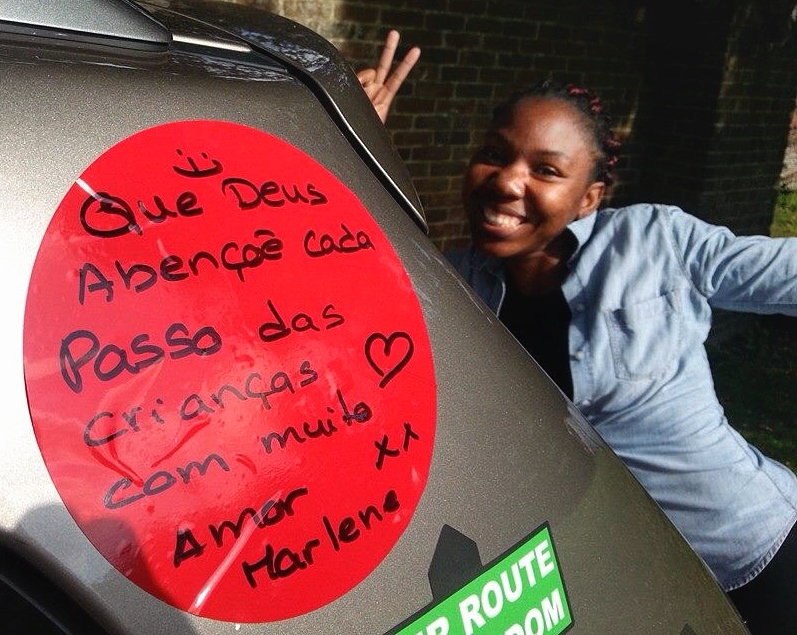 Que Deus
Abençoê cada
Passo das
crianças
com muito
xx
Amor
Marlene
ROUTE